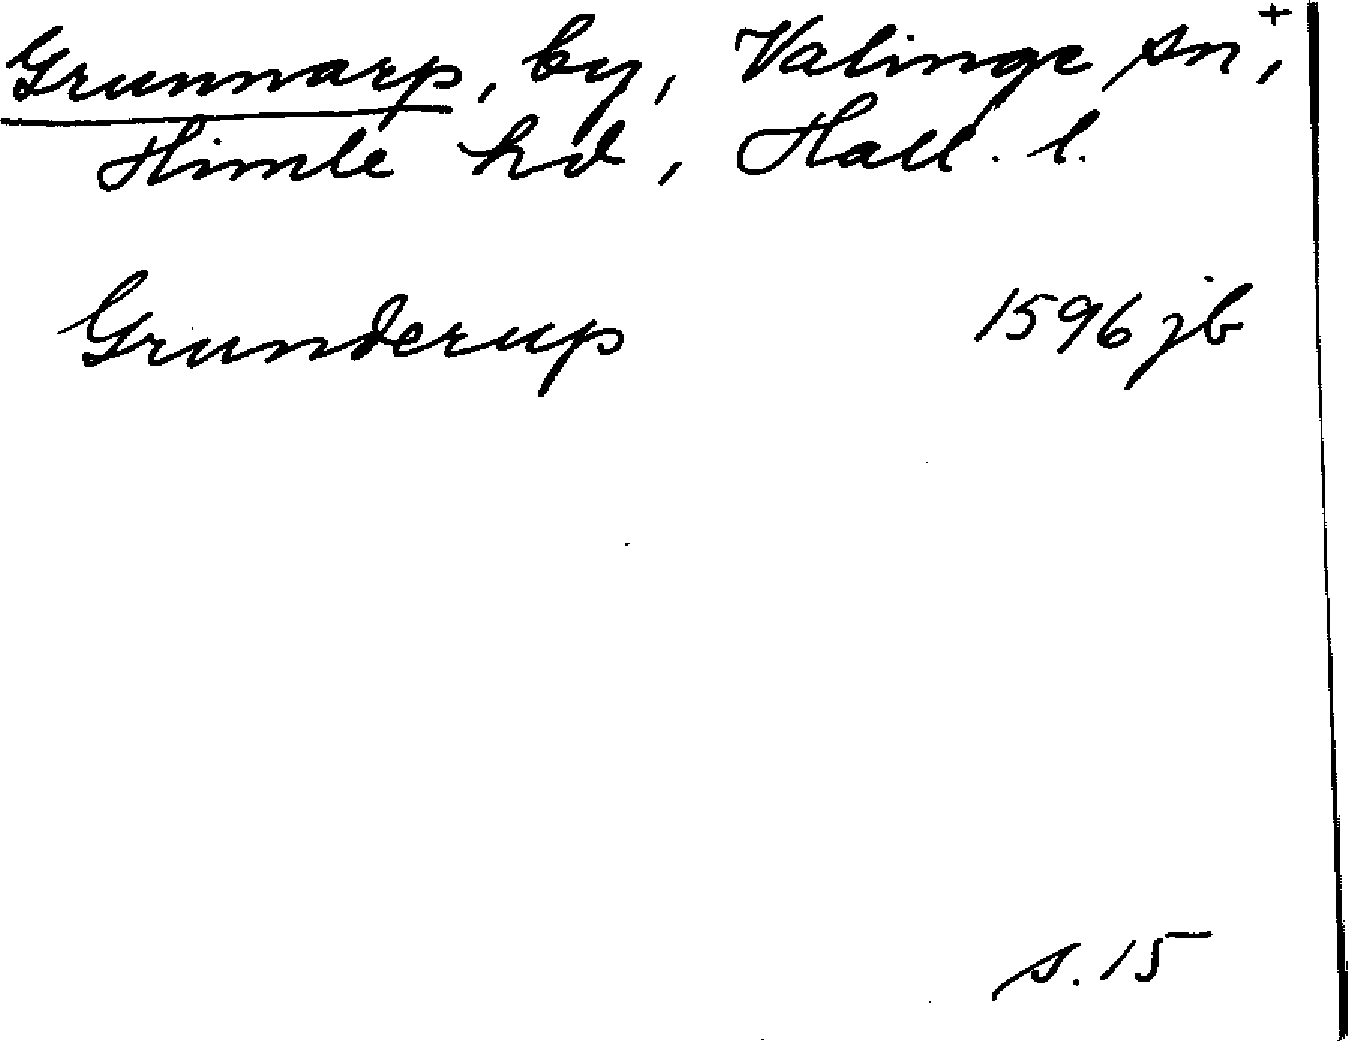 Grunnarp, by, Valinge sn, +
Himle hd, Hall. l.
Grunderup 1596 jb
s. 15